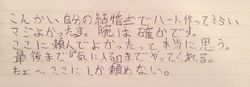 こんかい自分の結婚式でハート作ってもらい
マジよかったす。腕は確かです。
ここに頼んでよかったって本当に思う。
最後まで気に入る切までやってくれる。
ちょ〜ここにしか頼めない。